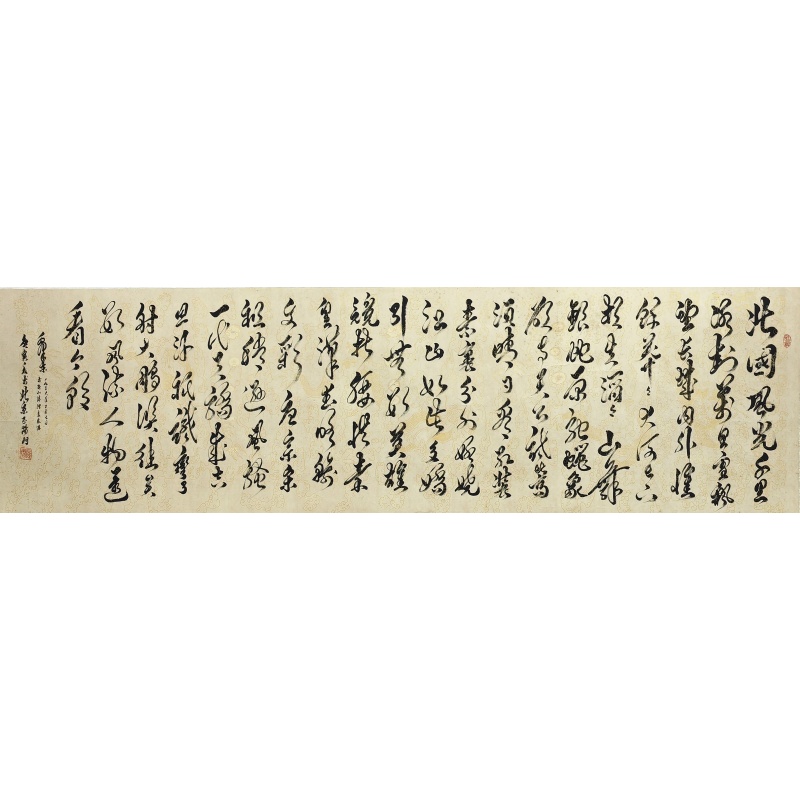 北國風光千里
冰封萬里雪飄
望長城內外惟
餘莽々大河上下
頓失滔々山舞
銀蛇原馳蠟象
欲與天公試比高
須晴日看紅裝
素裹分外妖嬈
江山如此多嬌
引無數英雄
競折腰惜秦
皇漢武略輸
文彩唐宗宋
祖稍遜風騷
一代天驕成吉
思汗祇識彎弓
射大鵰俱往矣
數風流人物還
看今朝
庚寅 北京